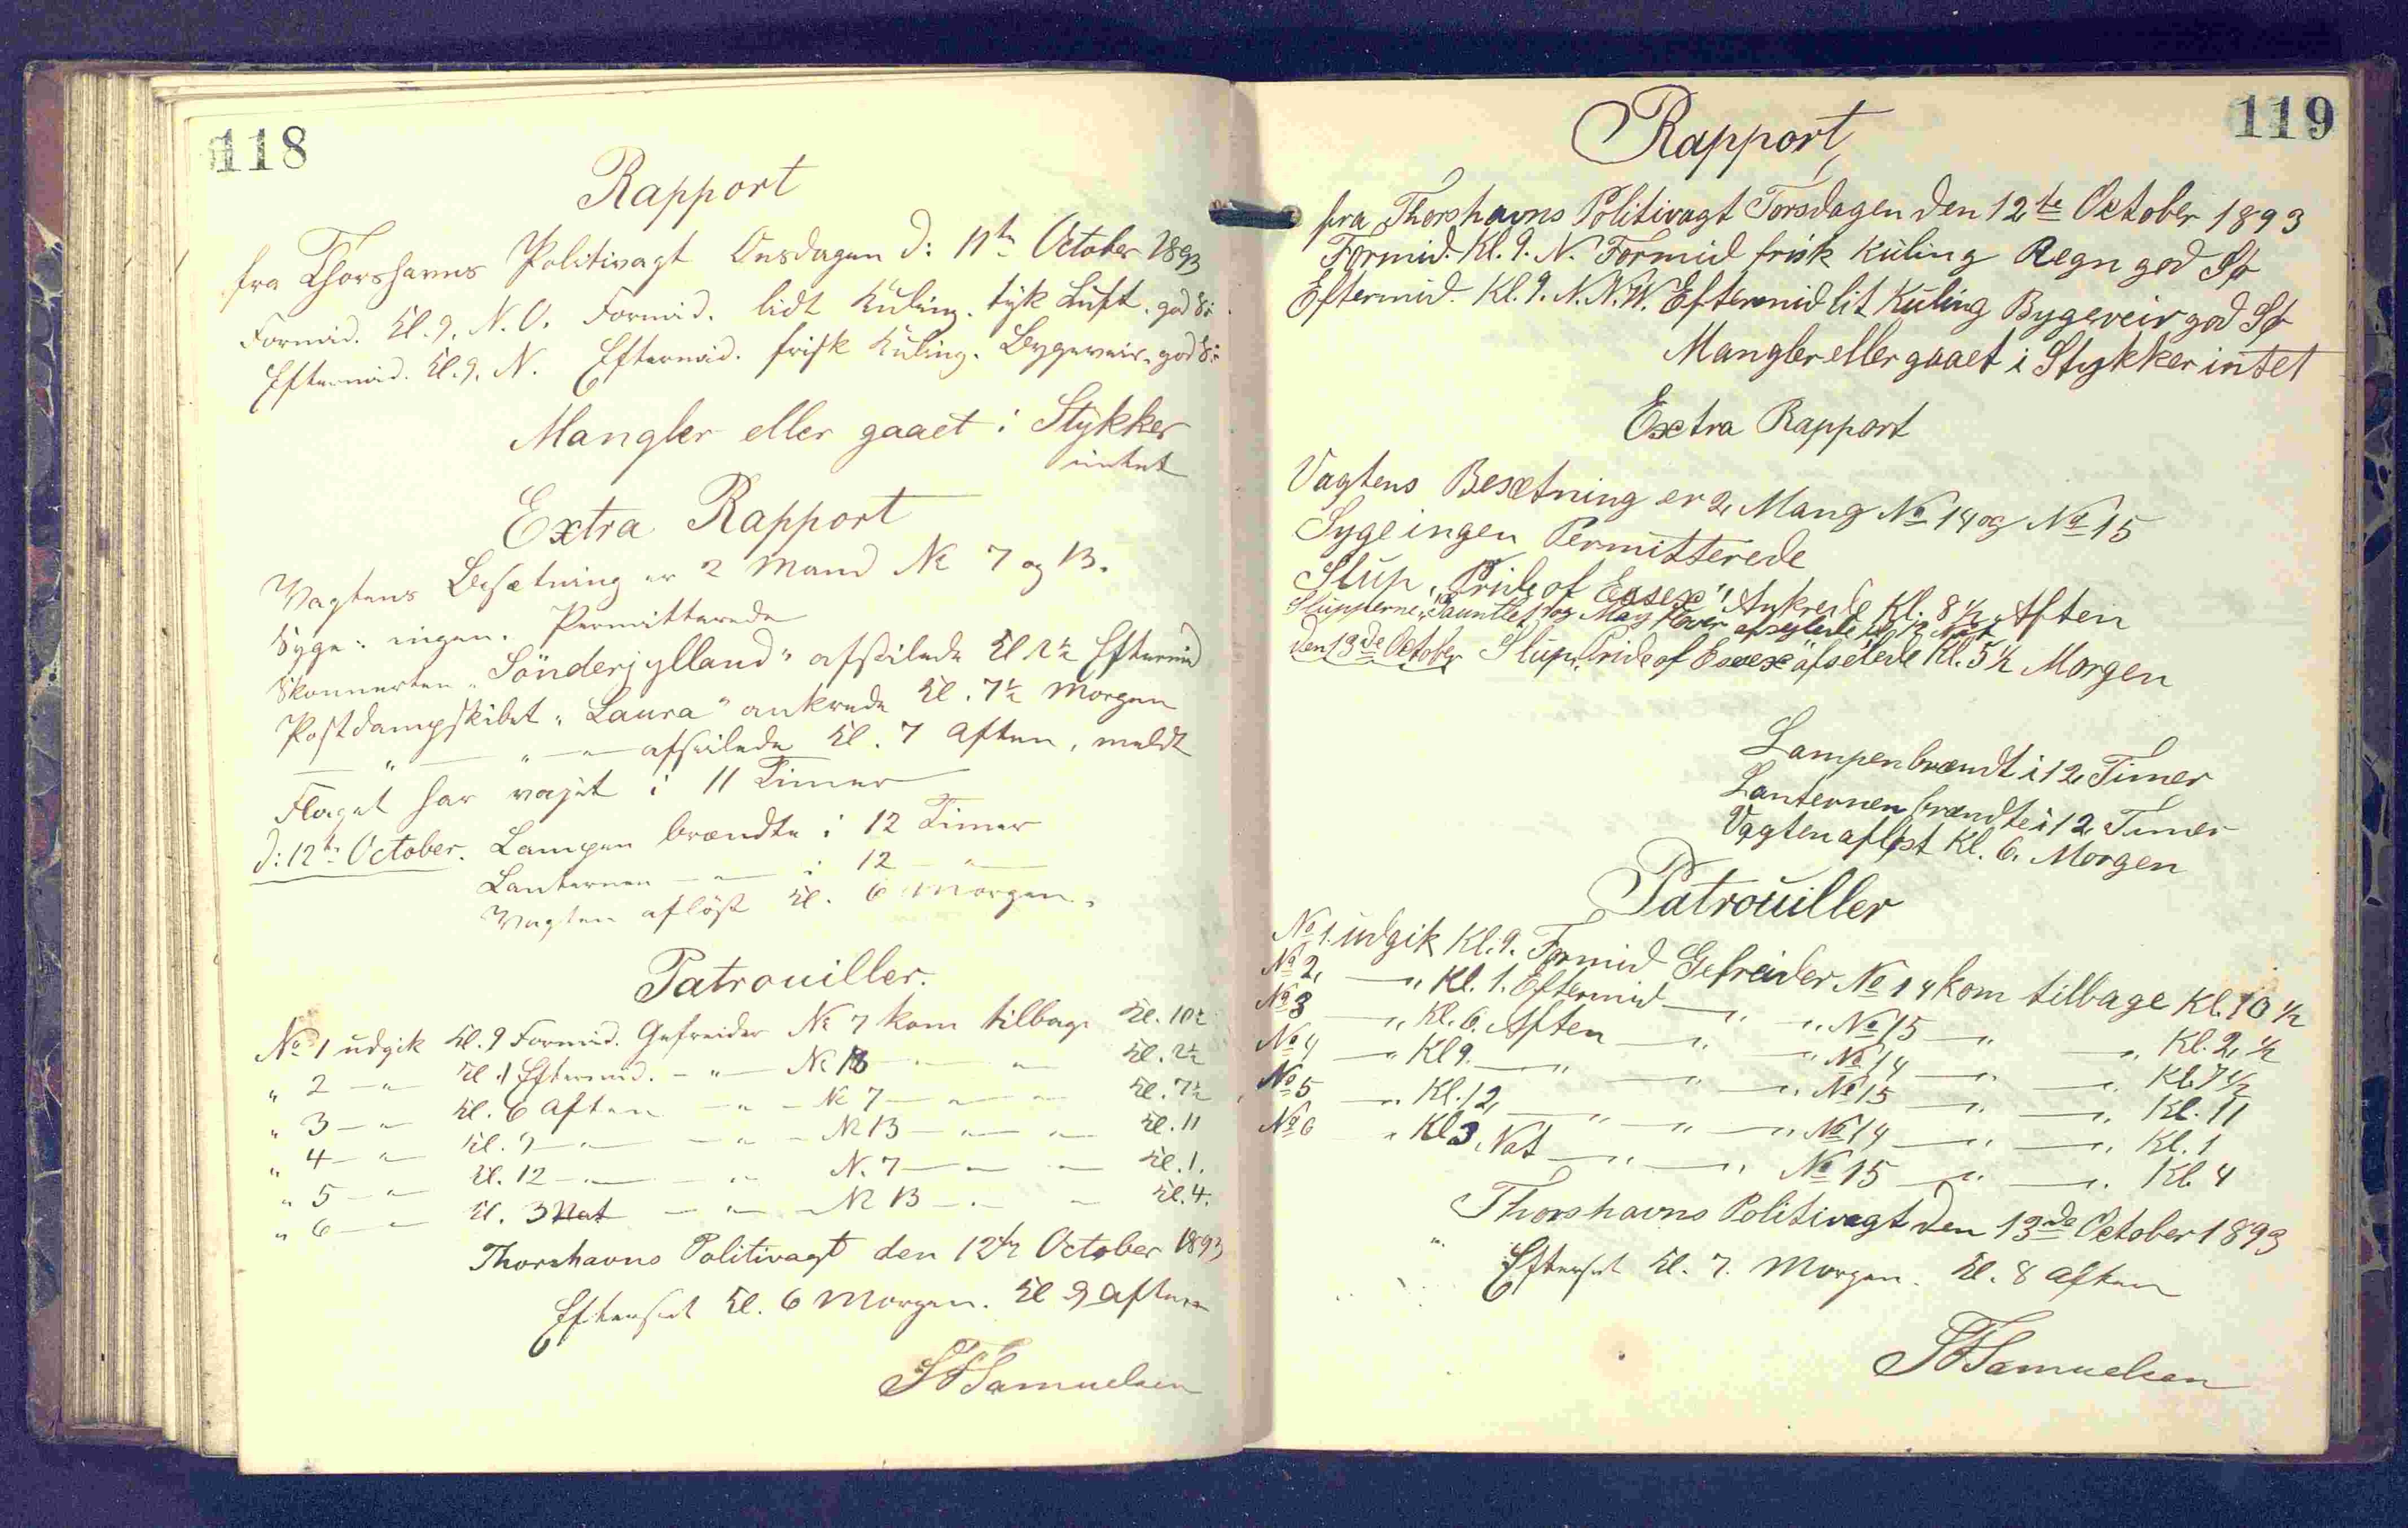 118
Rapport
fra Thorshavns Politivagt Onsdagen d: 11te October 1893
Formid. Kl. 9. N.O. Formid. lidt Kuling. tyk Luft. god Sö.
Eftermid. Kl. 9. N. Eftermid. frisk Kuling. Bygeveir. god Sö
Mangler eller gaaet i Stykker
intet
Extra Rapport
Vagtens Besætning er 2 Mand No 7 og 13.
Syge: ingen. Permitterede
Skonnerten „Sönderjylland" afseilede Kl 2½ Eftermid
Postdampskibet „Laura" ankrede Kl. 7½ Morgen
— " — " — " — afseilede Kl. 7 Aften, meldt
Flaget har vajet i 11 Timer
d: 12te October. Lampen brændte i 12 Timer
Lanternen — " — i 12 — " —
Vagten aflöst Kl. 6 Morgen.
Patrouiller.
No 1 udgik Kl. 9 Formid. Gefreider No 7 kom tilbage Kl. 10½
" 2 — " Kl. 1 Eftermid. — " — No 13 — " — " Kl. 2½
" 3 — " Kl. 6 Aften — " — No 7 — " — " Kl. 7½
" 4 — " Kl. 9 — " — " — No 13 — " — " — Kl. 11
" 5 — " Kl. 12 — " — " N. 7 — " — Kl. 1.
" 6 — " Kl. 3 Nat — " — No 13 — " — Kl. 4.
Thorshavns Politivagt den 12te October 1893
Efterseet Kl. 6 Morgen. Kl 9 Aften
Samuelsen
119
Rapport
fra Thorshavns Politivagt Torsdagen den 12te October 1893
Formid. Kl. 9. N. Formid frisk Kuling Regn god Sø
Eftermid. Kl. 9. N.N.W. Eftermid lit Kuling Bygeveir god Sø
Mangler eller gaaet i Stykker intet
Extra Rapport
Vagtens Besætning er 2, Mang No 14 og No 15
Syge ingen Permitterede
Slup „Pride of Essex" Ankrede Kl. 8½ Aften
Slupperne „Gauntlet" og May flover afseylede Kl 12 Nat
den 13de October Slup „Pride of Essex" afseilede Kl. 5½ Morgen
Lampen brændt i 12, Timer
Lanternen brændte i 12, Timer
Vagten afløst Kl. 6. Morgen
Patrouiller
No 1. udgik Kl. 9. Formid Gefreider No 14 kom tilbage Kl. 10½
No 2, — " Kl. 1. Eftermid — " — " No 15 — " — " Kl. 2,½
No 3 — " Kl. 6. Aften — " — " No 14 — " — " Kl. 7½
No 4 — " Kl 9. — " — " — " No 15 — " — " Kl. 11
No 5 — " Kl. 12, — " — " — " No 14 — " — " Kl. 1
No 6 " Kl 3 Nat — " — " No 15 — " — " Kl. 4
Thorshavns Politivagt den 13de October 1893
Efterseet Kl. 7. Morgen. Kl. 8 Aften
Samuelsen